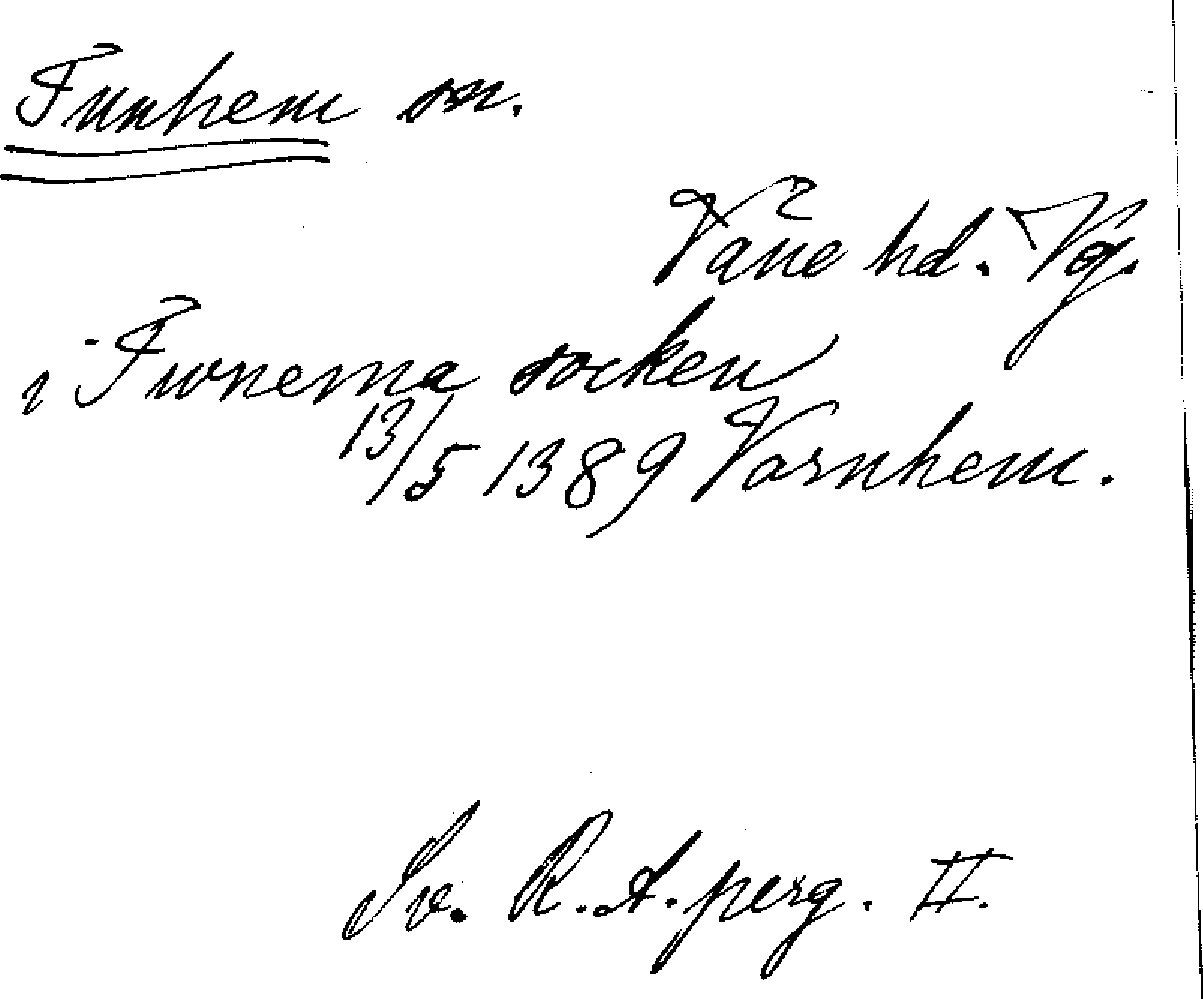 Tunhem sn.
Väne hd. Vg.
i Twnema socken
13/5 1389 Varnhem.
Sv. R. A. perg. II.